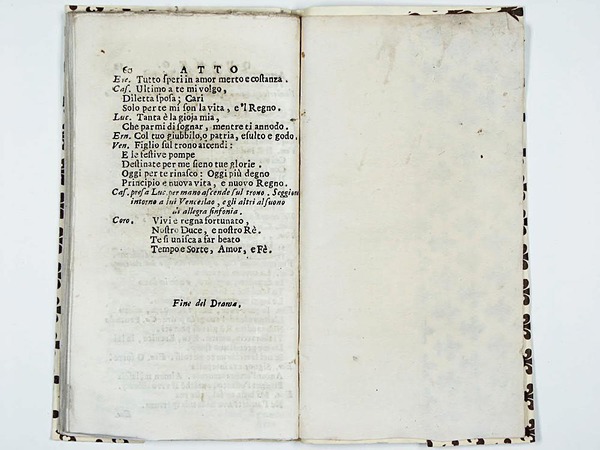 60 ATTO
Ere. Tutto speri in amor merto e costanza.
Cas. Ultimo a te mi volgo,
Diletta sposa; Cari
Solo per te mi son la vita, e 'l Regno.
Luc. Tanta è la gioja mia,
Che parmi di sognar, mentre ti annodo.
Ern. Col tuo giubbilo, o patria, esulto e godo.
Ven. Figlio sul trono ascendi:
E le festive pompe
Destinate per me sieno tue glorie.
Oggi per te rinasco: Oggi più degno
Principio e nuova vita, e nuovo Regno.
Cas. presa Luc. per mano ascende sul trono. Seggion
intorno a lui Venceslao, e gli altri al suono
di allegra sinfonia.
Coro. Vivi e regna fortunato,
Nostro Duce, e nostro Rè.
Te si unisca a far beato
Tempo e Sorte, Amor, e Fè.
Fine del Drama.